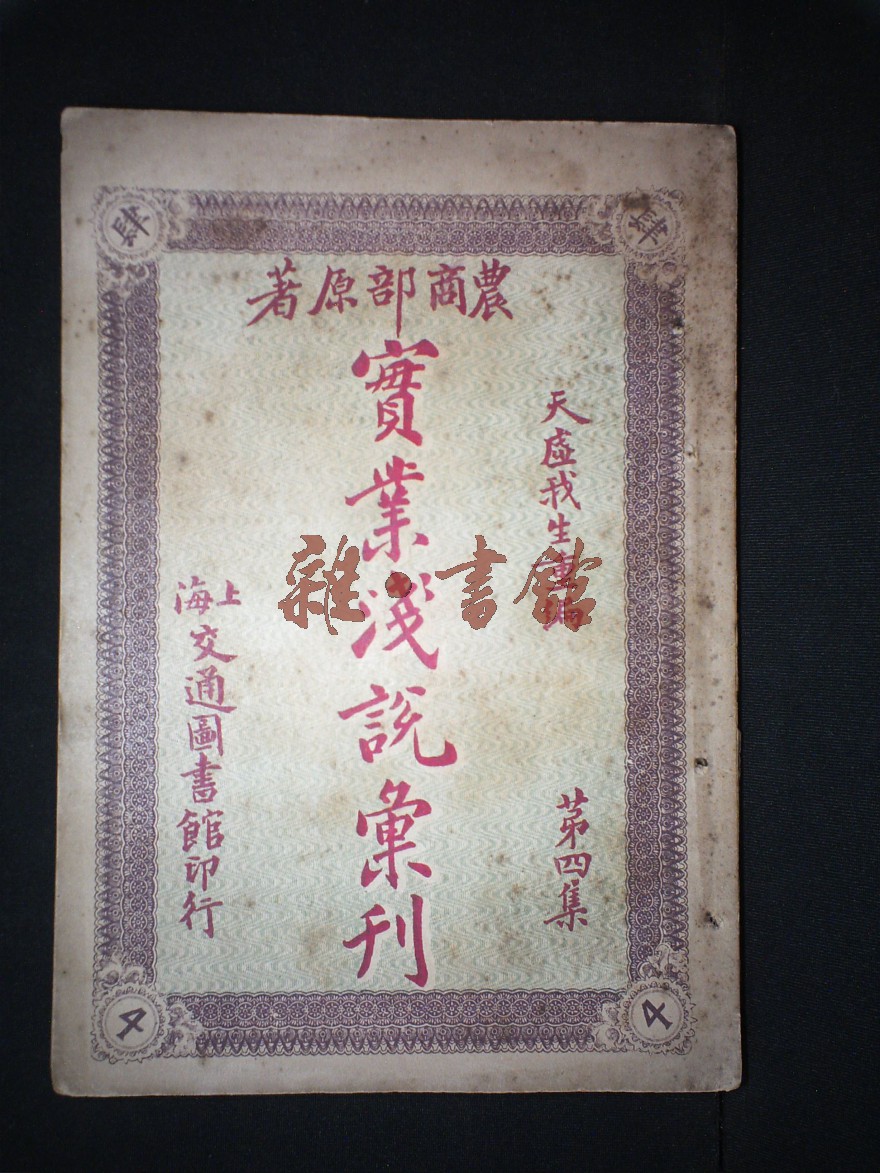 農商部原著
天虛我生重編
第四集
實業淺説彙刊
上海
交通圖書館印行
肆
肆
4
4
雜·書館